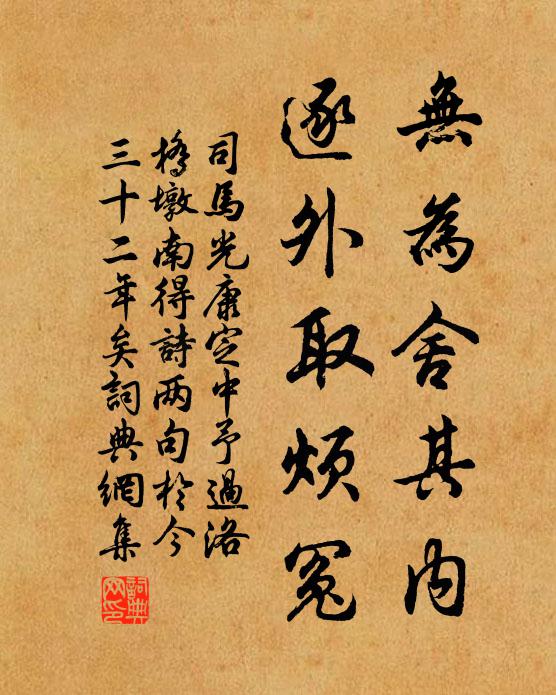 無為舍其內
逐外取煩冤
司馬光康定中予過洛
橋墩南得詩两句於今
三十二年矣詞典網集
詞典網印